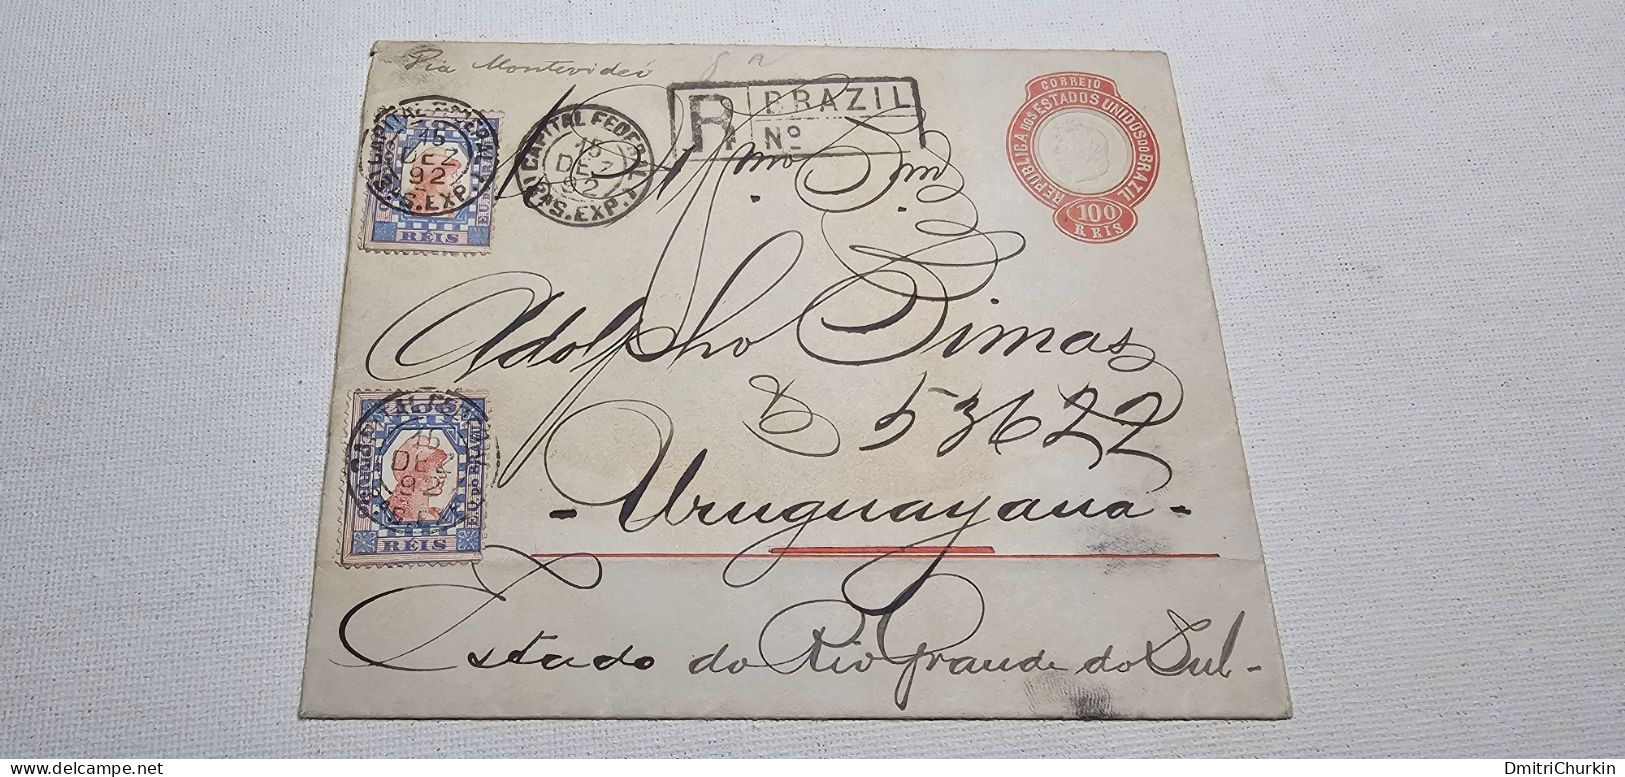 Via Montevideó
CAPITAL FEDERAL
15
DEZ
92
S. EXP.
CAPITAL FEDERAL
15
DEZ
92
S. EXP.
R BRAZIL
Nº
CORREIO
REPUBLICA DOS ESTADOS UNIDOS DO BRAZIL
100
REIS
REIS
Illmo. Snr.
Adolpho Simas
53622
- Uruguayana -
15
DEZ
92
E.U. DO BRAZIL
REIS
Estado do Rio Grande do Sul -
delcampe.net
DmitriChurkin